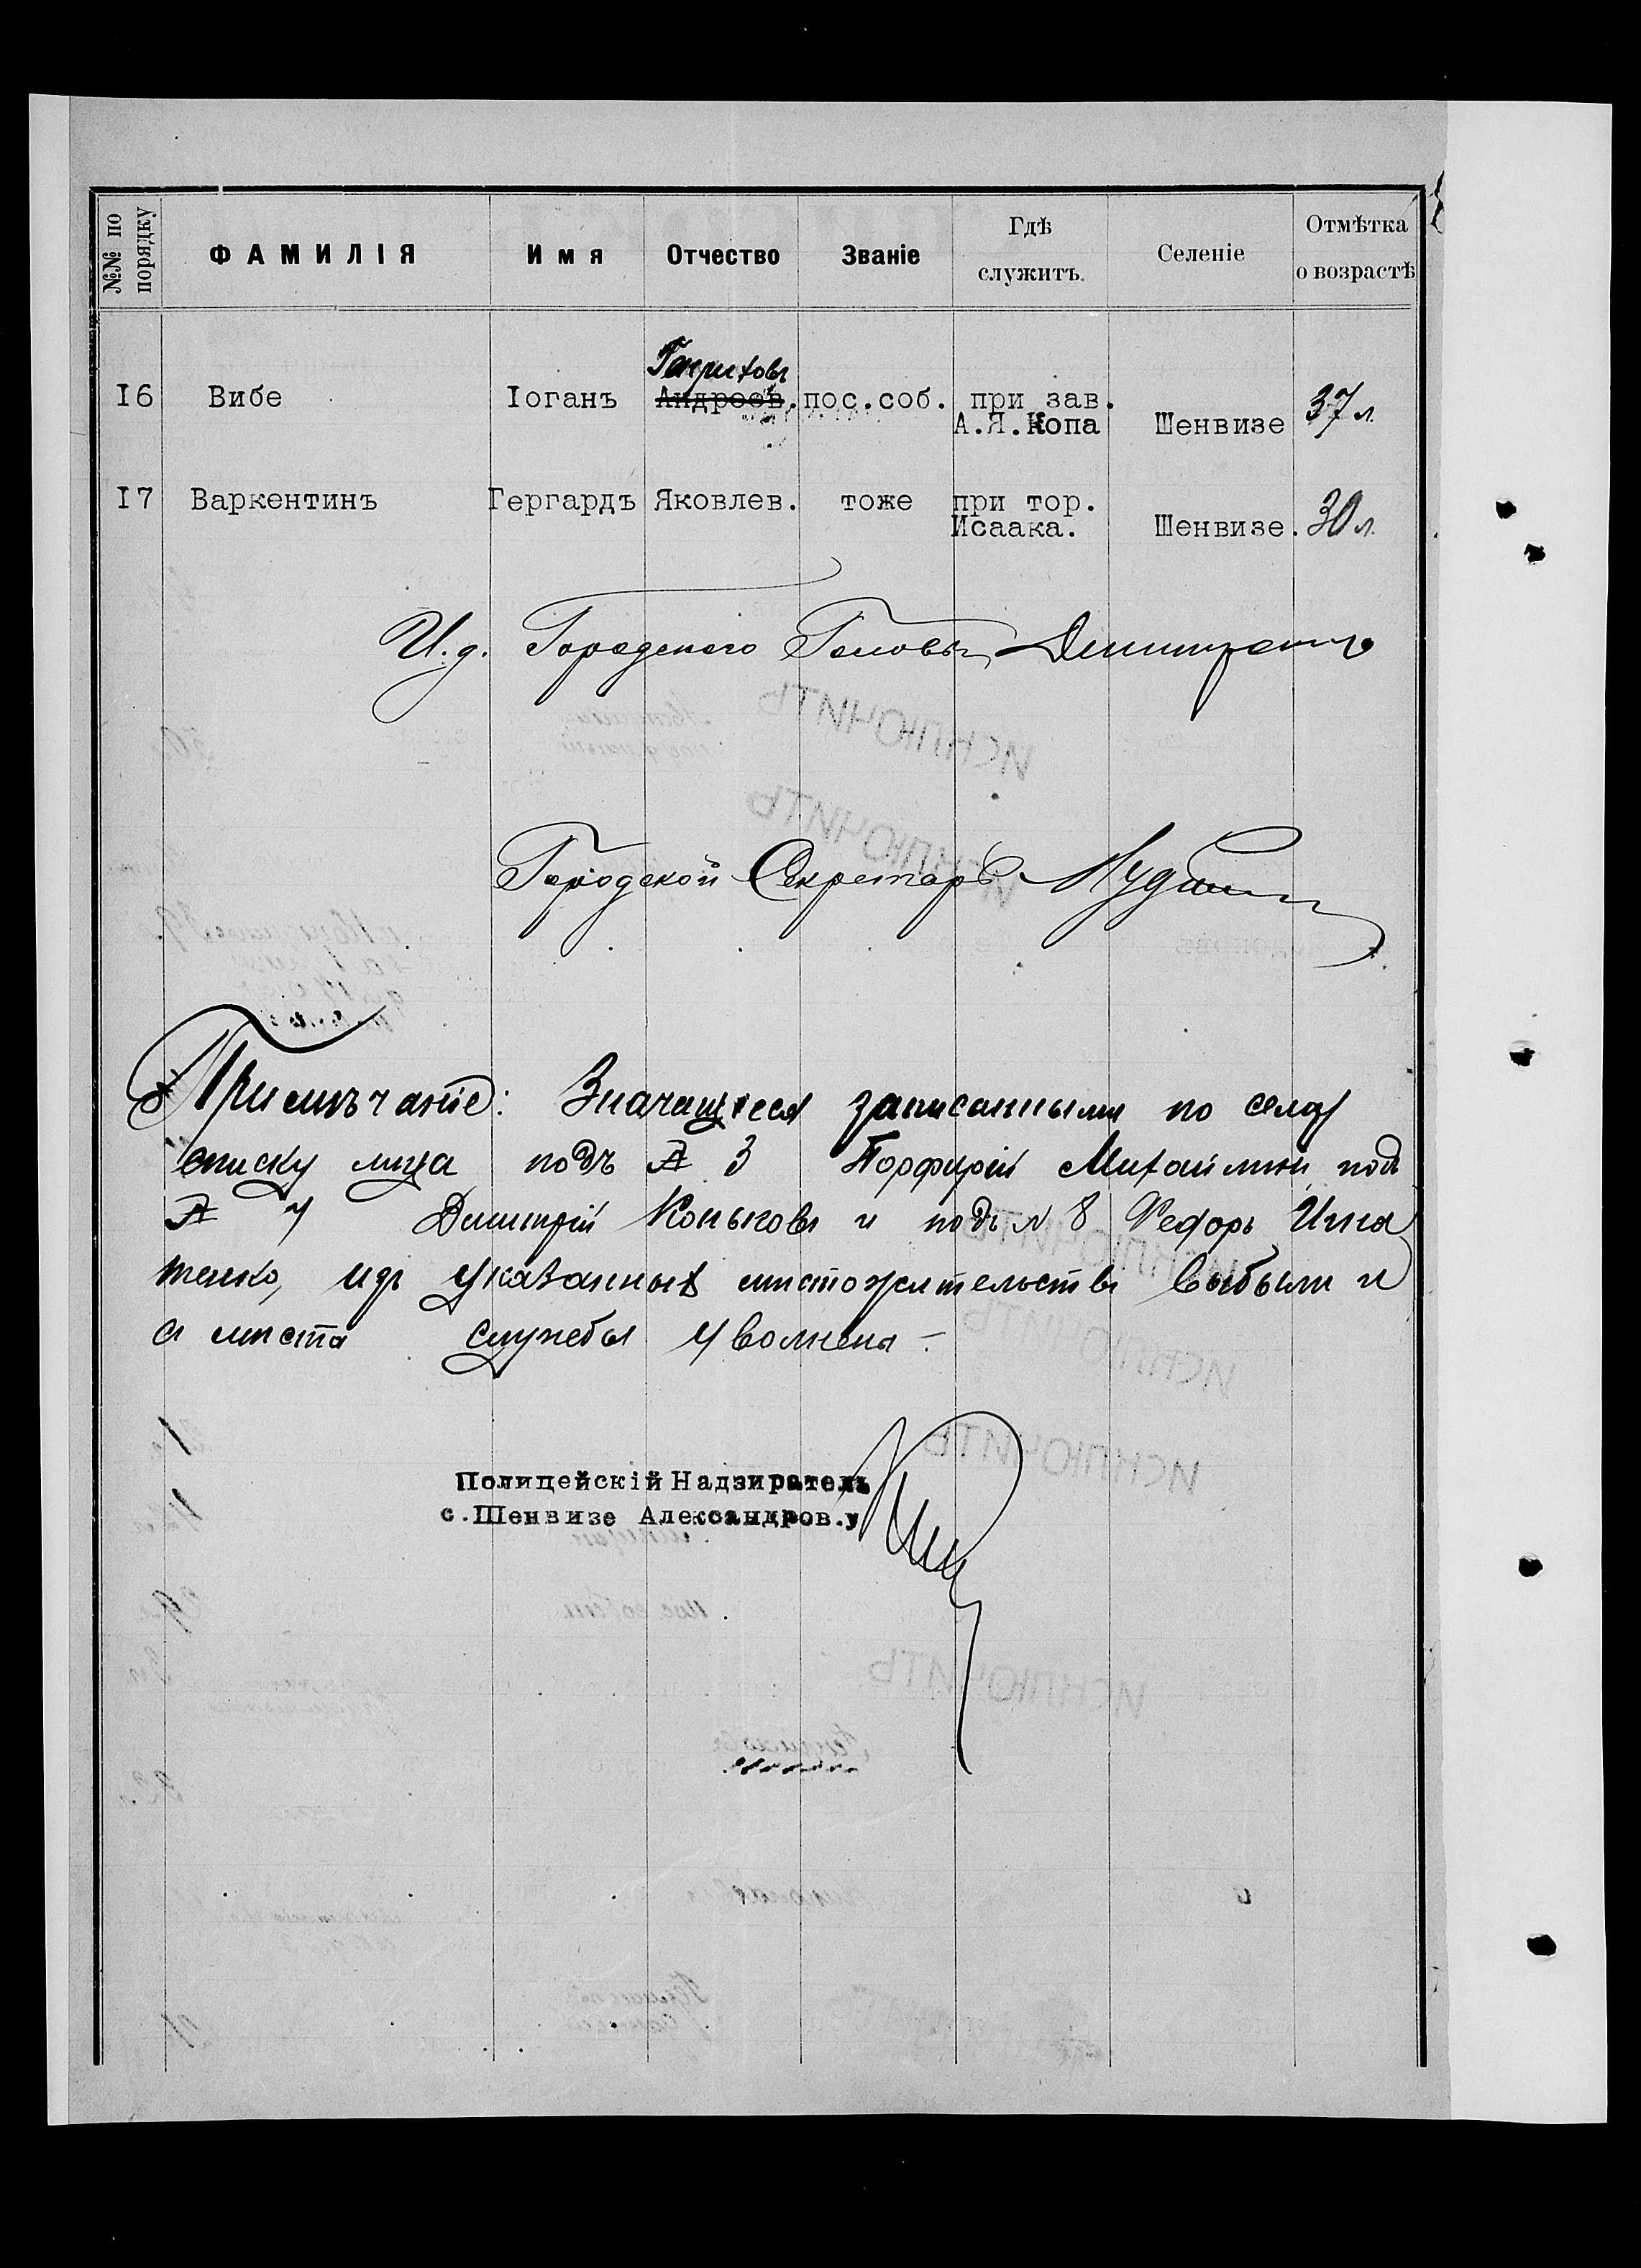 №№ по порядку ФАМИЛІЯ Имя Отчество Званіе Гдѣ служитъ. Селеніе Отмѣтка о возрастѣ
Генриховъ
16 Вибе Іоганъ Андреев. пос.соб. при зав. 37 л.
А.Я.Копа Шенвизе
17 Варкентинъ Гергардъ Яковлев. тоже при тор. 30 л.
Исаака. Шенвизе.
И.д. Городского Головы
Городской Секретарь
Примѣчаніе: Значащіеся записанными по сему
списку лица подъ № 3 Порфирій Михайликъ, подъ
№ 7 Димитрій Коньковъ и подъ № 8 Федоръ Игна
тенко, изъ указанныхъ мѣстожительствъ выбыли и
съ мѣста службы уволены.-
Полицейскій Надзиратель
с.Шенвизе Александров.у
ИСКЛЮЧИТЬ
ИСКЛЮЧИТЬ
ИСКЛЮЧИТЬ
ИСКЛЮЧИТЬ
ИСКЛЮЧИТЬ
ИСКЛЮЧИТЬ